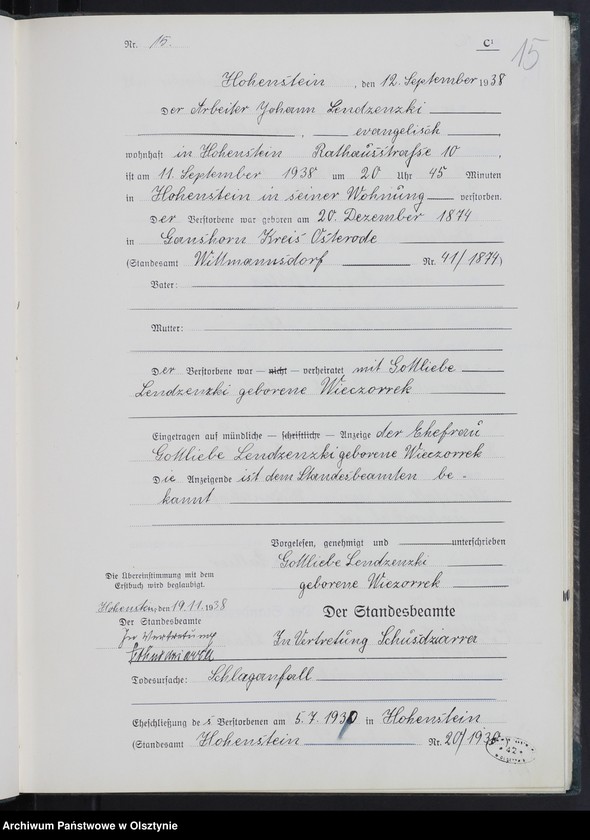 Nr. 15. C¹
15
Hohenstein, den 12. September 1938
Der Arbeiter Johann Lendzenzki
, evangelisch,
wohnhaft in Hohenstein Rathausstraße 10,
ist am 11. September 1938 um 20 Uhr 45 Minuten
in Hohenstein in seiner Wohnung verstorben.
Der Verstorbene war geboren am 20. Dezember 1874
in Ganshorn Kreis Osterode
(Standesamt Wittmannsdorf Nr. 41/1874)
Vater:
Mutter:
Der Verstorbene war — nicht — verheiratet mit Gottliebe
Lendzenzki geborene Wieczorrek
Eingetragen auf mündliche — schriftliche — Anzeige der Ehefrau
Gottliebe Lendzenzki geborene Wieczorrek
Die Anzeigende ist dem Standesbeamten be-
kannt
Vorgelesen, genehmigt und unterschrieben
Gottliebe Lendzenzki
geborene Wiezorrek
Der Standesbeamte
In Vertretung Schusdziarra
Die Übereinstimmung mit dem
Erstbuch wird beglaubigt.
Hohenstein, den 19.11.1938
Der Standesbeamte
In Vertretung
Schusdziarra
Todesursache: Schlaganfall
Eheschließung des Verstorbenen am 5.7.1930 in Hohenstein
(Standesamt Hohenstein Nr. 20/1930
Archiwum Państwowe w Olsztynie